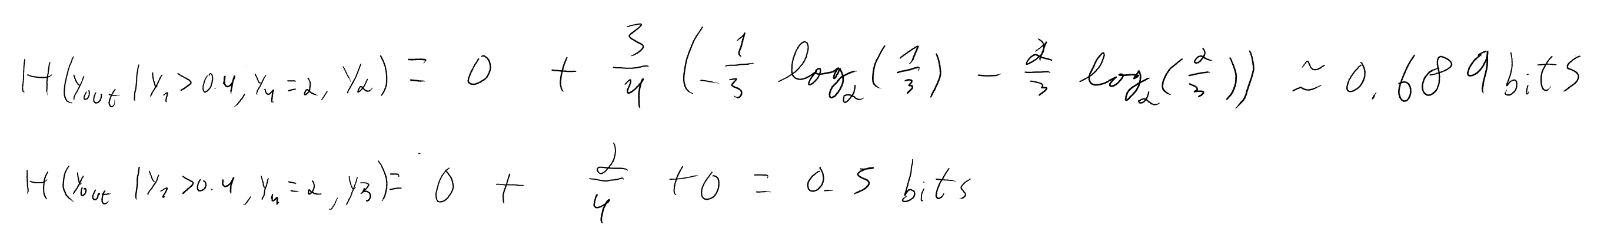 H(y_out | y_1 > 0.4, y_4 = 2, y_2) = 0 + 3/4 (-1/3 log_2(1/3) - 2/3 log_2(2/3)) ≈ 0.689 bits
H(y_out | y_1 > 0.4, y_4 = 2, y_3) = 0 + 2/4 + 0 = 0.5 bits